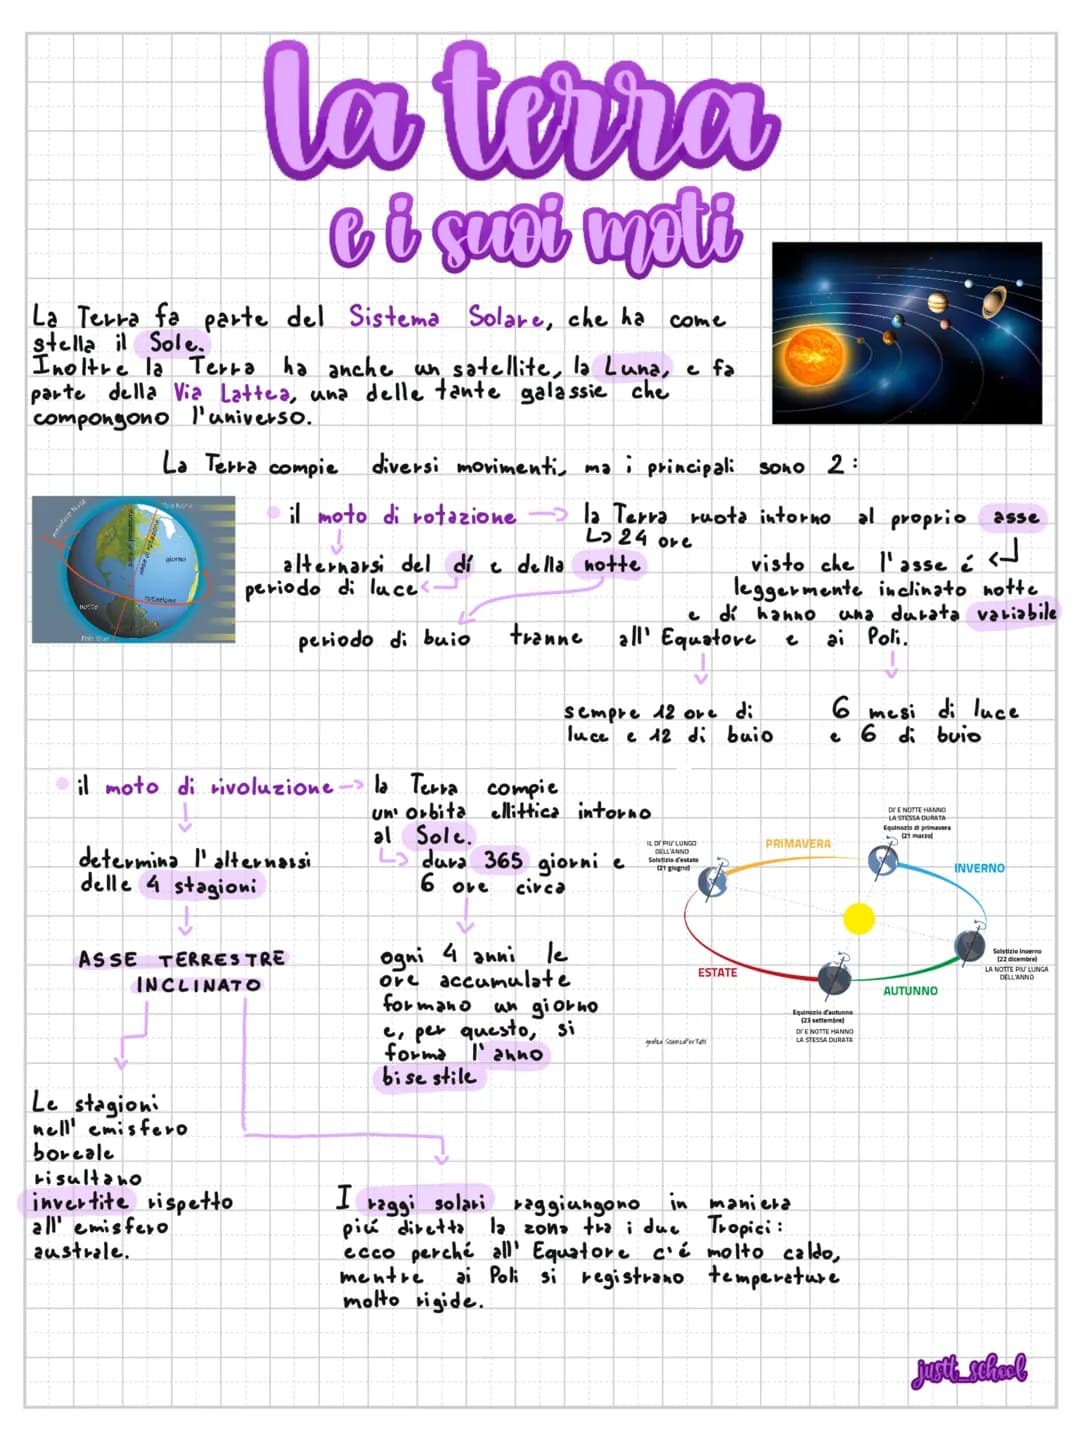 la terra
e i suoi moti
La Terra fa parte del Sistema Solare, che ha come
stella il Sole.
Inoltre la Terra ha anche un satellite, la Luna, e fa
parte della Via Lattea, una delle tante galassie che
compongono l'universo.
La Terra compie diversi movimenti, ma i principali sono 2:
giorno
notte
rotazione
il moto di rotazione → la Terra ruota intorno al proprio asse
↳ 24 ore
alternarsi del dí e della notte
periodo di luce
periodo di buio
visto che l'asse é
leggermente inclinato notte
e dí hanno una durata variabile
tranne all'Equatore e ai Poli.
sempre 12 ore di
luce e 12 di buio
6 mesi di luce
e 6 di buio
il moto di rivoluzione → la Terra compie
un'orbita ellittica intorno
al Sole.
↳ dura 365 giorni e
6 ore circa
determina l'alternarsi
delle 4 stagioni
ASSE TERRESTRE
INCLINATO
ogni 4 anni le
ore accumulate
formano un giorno
e, per questo, si
forma l'anno
bisestile
DI' E NOTTE HANNO
LA STESSA DURATA
Equinozio di primavera
(21 marzo)
IL DI' PIU' LUNGO
DELL'ANNO
Solstizio d'estate
(21 giugno)
PRIMAVERA
INVERNO
ESTATE
AUTUNNO
Solstizio Inverno
(22 dicembre)
LA NOTTE PIU' LUNGA
DELL'ANNO
Equinozio d'autunno
(23 settembre)
DI' E NOTTE HANNO
LA STESSA DURATA
grafica ScienzaPerTutti
Le stagioni
nell'emisfero
boreale
risultano
invertite rispetto
all'emisfero
australe.
I raggi solari raggiungono in maniera
piú diretta la zona tra i due Tropici:
ecco perché all'Equatore c'é molto caldo,
mentre ai Poli si registrano temperature
molto rigide.
justt_school